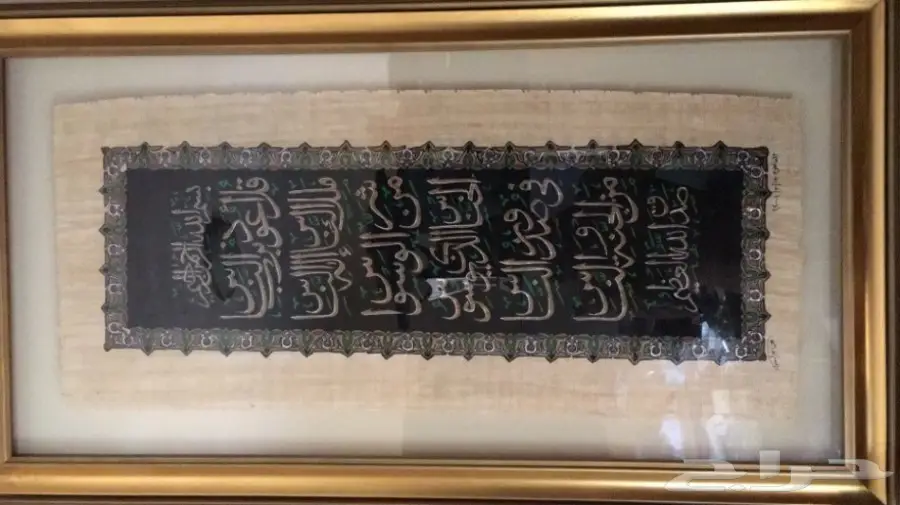 بسم الله الرحمن الرحيم
قل أعوذ برب الناس
ملك الناس إله الناس
من شر الوسواس
الخناس الذي يوسوس
في صدور الناس
من الجنة والناس
صدق الله العظيم
حراج